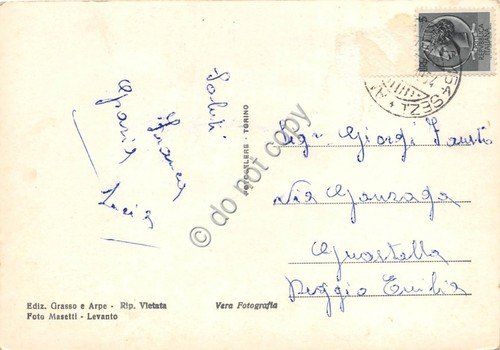 Saluti
Franca
Grazia
Lucia
FOTOCELERE - TORINO
Sig. Giorgi Fausto
Via Gonzaga
Guastalla
Reggio Emilia
Ediz. Grasso e Arpe - Rip. Vietata
Foto Masetti - Levanto
Vera Fotografia
© do not copy